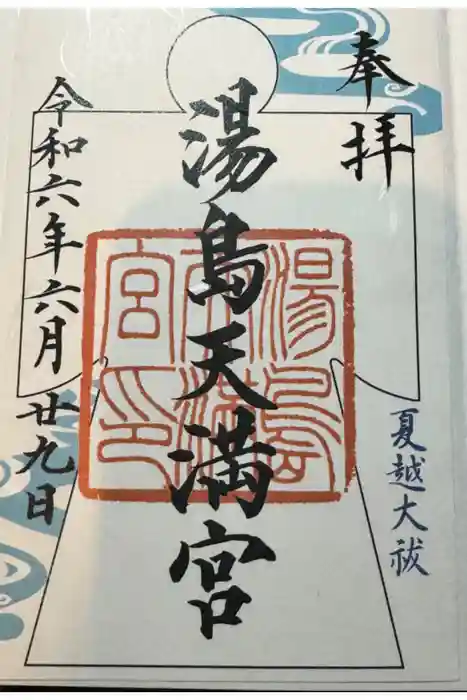 奉拝
湯島天満宮
湯島天満宮印
夏越大祓
令和六年六月廿九日